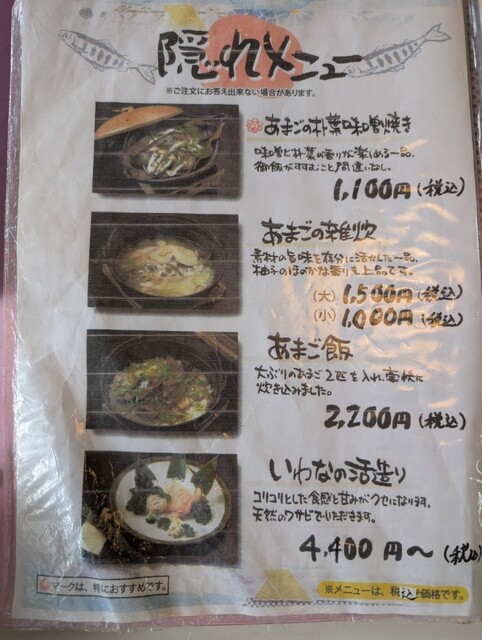 隠れメニュー
※ご注文にお答え出来ない場合があります。
あまごの朴葉味噌焼き
味噌と朴葉の香りが楽しめる一品。
御飯がすすむこと間違いなし。
1,100円(税込)
あまごの雑炊
素材の旨味を存分に活かした一品。
柚子のほのかな香りも上品です。
(大) 1,500円(税込)
(小) 1,000円(税込)
あまご飯
大ぶりのあまご2匹を入れ、豪快に
炊き込みました。
2,200円(税込)
いわなの活造り
コリコリとした食感と甘みがクセになります。
天然のワサビでいただきます。
4,400円〜(税込)
マークは、特におすすめです。
※メニューは、税込価格です。